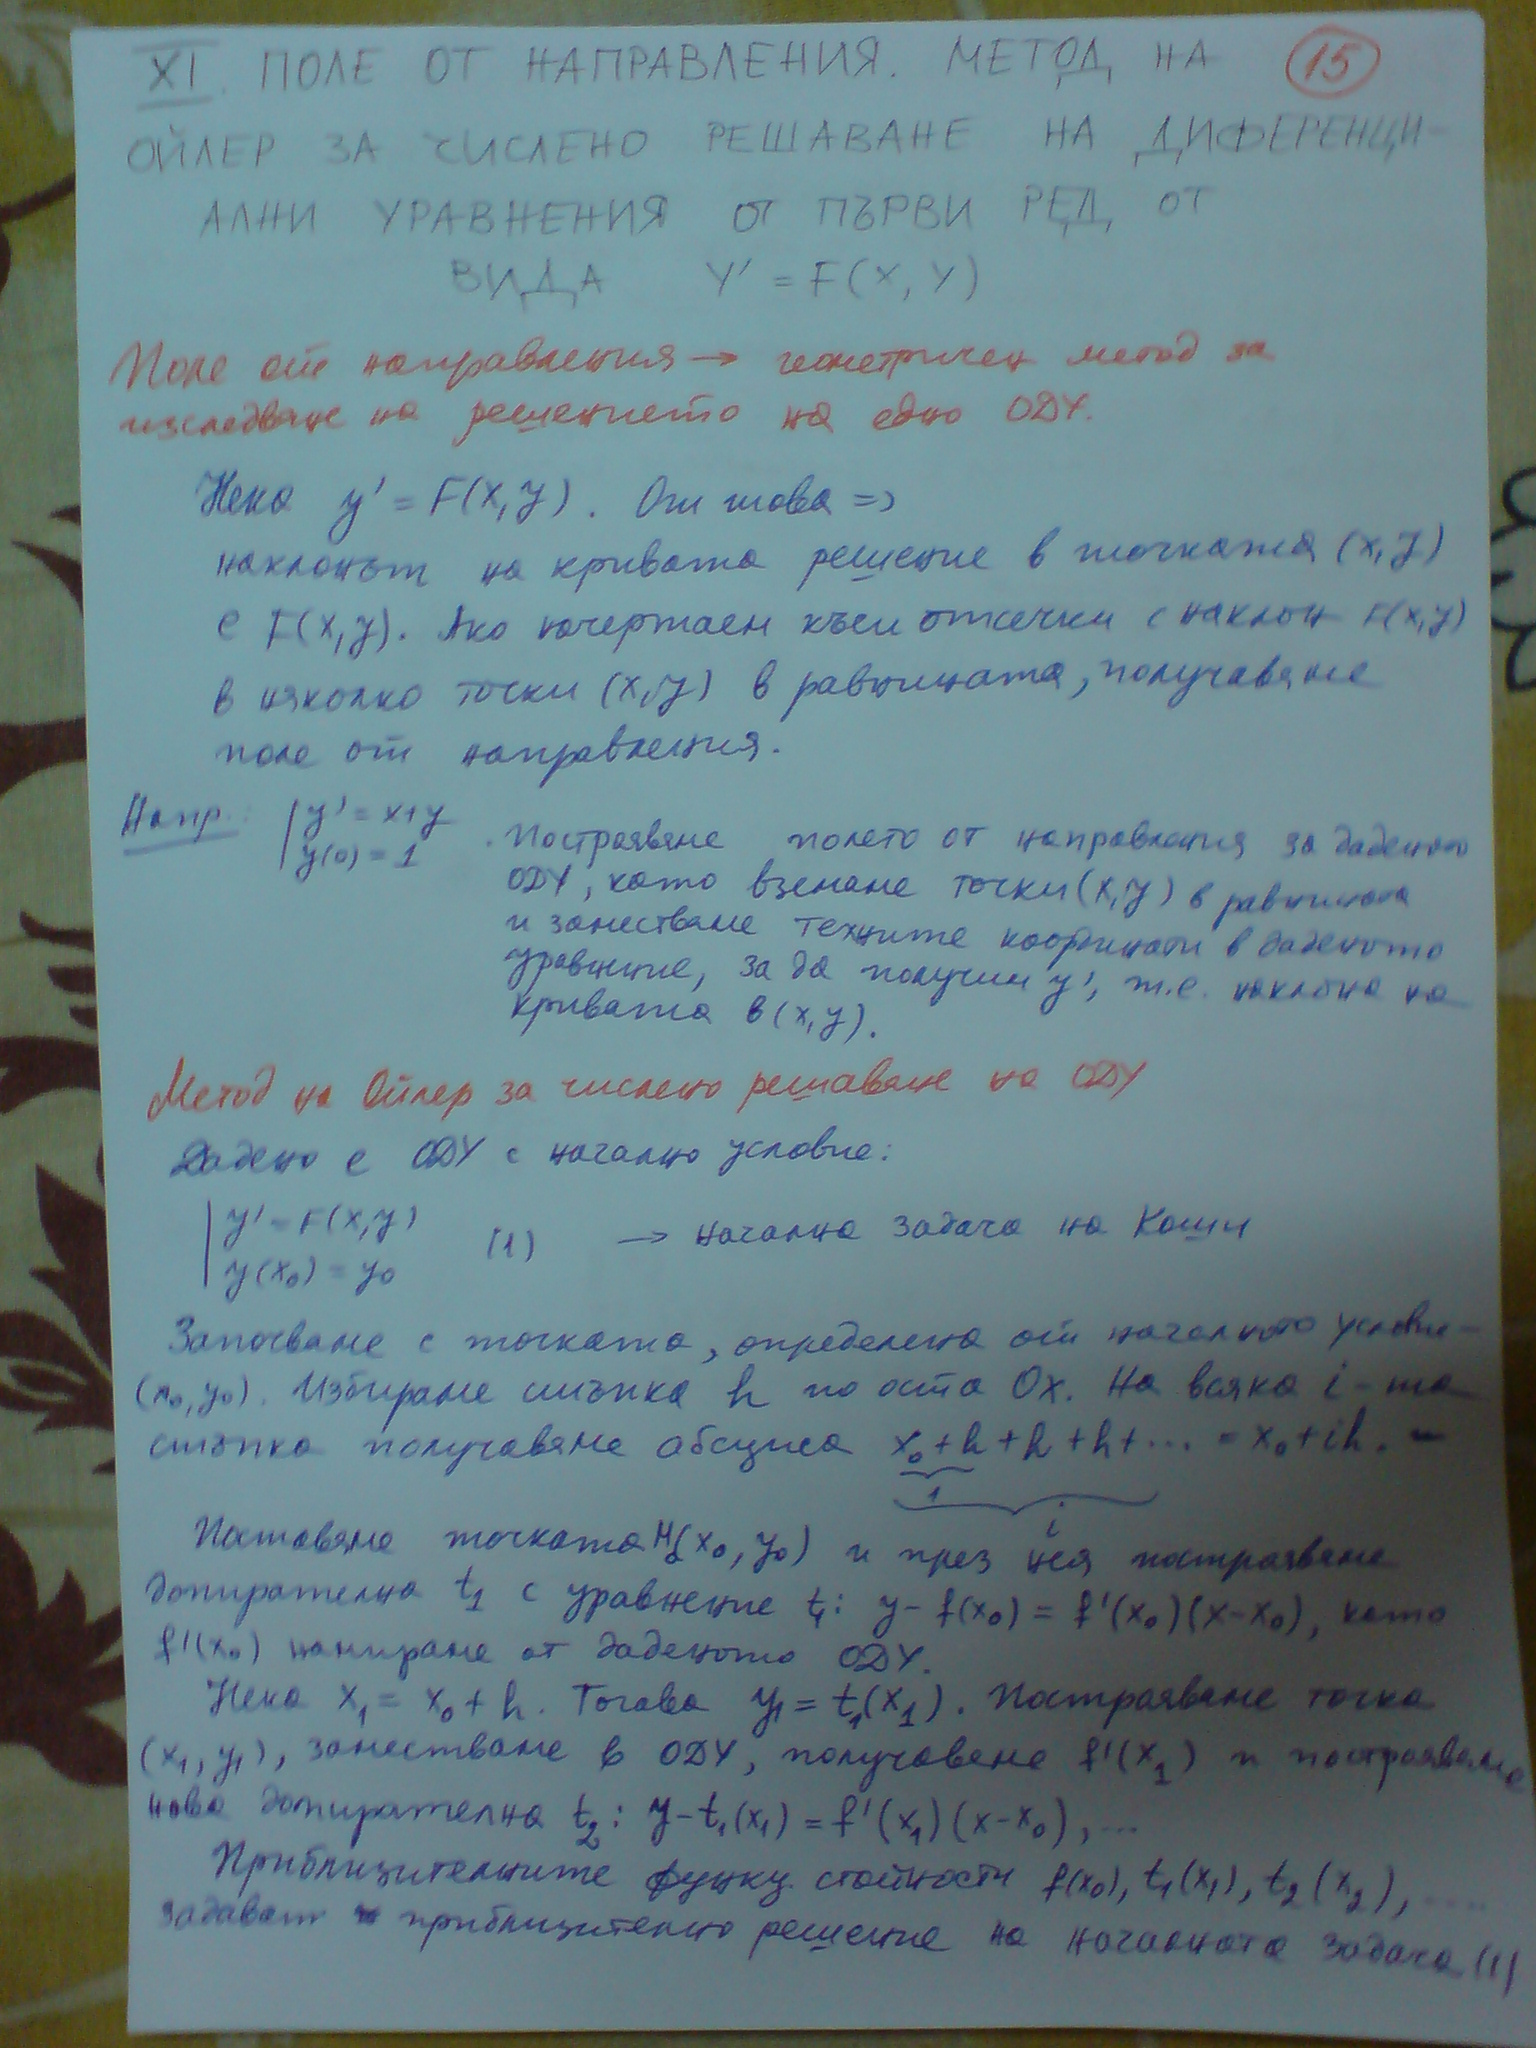 XI. ПОЛЕ ОТ НАПРАВЛЕНИЯ. МЕТОД НА 15
ОЙЛЕР ЗА ЧИСЛЕНО РЕШАВАНЕ НА ДИФЕРЕНЦИ-
АЛНИ УРАВНЕНИЯ ОТ ПЪРВИ РЕД ОТ
ВИДА Y' = F(X, Y)
Поле от направления → геометричен метод за
изследване на решението на едно ОДУ.
Нека y' = F(x,y). От това =>
наклонът на кривата решение в точката (x,y)
е F(x,y). Ако начертаем към отсечки с наклон F(x,y)
в няколко точки (x,y) в равнината, получаваме
поле от направления.
Напр.: y' = x+y
y(0) = 1
. Построяваме полето от направления за даденото
ОДУ, като вземаме точки (x,y) в равнината
и заместваме техните координати в даденото
уравнение, за да получим y', т.е. наклона на
кривата в (x,y).
Метод на Ойлер за числено решаване на ОДУ
Дадено е ОДУ с начално условие:
y' = F(x,y)
y(x₀) = y₀
(1) → начална задача на Коши
Започваме с точката, определена от началното условие -
(x₀,y₀). Избираме стъпка h по оста Ox. На всяка i-та
стъпка получаваме абсциса x₀+h+h+h+... = x₀+ih. -
1
i
Поставяме точката M(x₀,y₀) и през нея построяваме
допирателна t₁ с уравнение t₁: y-f(x₀) = f'(x₀)(x-x₀), като
f'(x₀) намираме от даденото ОДУ.
Нека x₁ = x₀+h. Тогава y₁ = t₁(x₁). Построяваме точка
(x₁,y₁), заместваме в ОДУ, получаваме f'(x₁) и построяваме
нова допирателна t₂: y-t₁(x₁) = f'(x₁)(x-x₀), ...
Приблизителните функц. стойности f(x₀), t₁(x₁), t₂(x₂), ....
задават приблизително решение на началната задача (1)